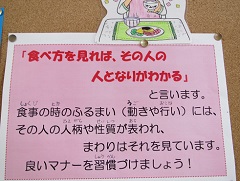 「食べ方を見れば、その人の
人となりがわかる」
と言います。
食事の時のふるまい（動きや行い）には、
その人の人柄や性質が表われ、
まわりはそれを見ています。
良いマナーを習慣づけましょう！